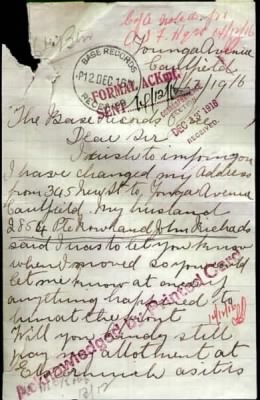 Younga Avenue
Caulfield
BASE RECORDS
12 DEC. 1916
RECEIVED
FORMAL ACKmt.
SENT 14/12/16
DEC 13 1916
RECEIVED
The Base Records
Dear Sir
I wish to inform you
I have changed my Address
from 345 St to Younga Avenue
Caulfield. My husband
2854 Pte Rowland John Richards
said I was to let you know
when I moved so you could
let me know at once if
anything happened to
him at the front
Will you kindly still
pay my allotment at
as it is
Acknowledged by Printed Card